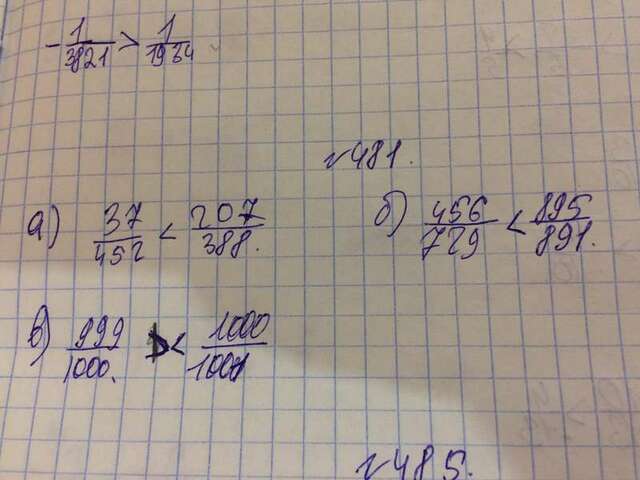 -1/3821 > 1/1934
№481.
а) 37/452 < 207/388. б) 456/729 < 895/891.
в) 999/1000. < 1000/1001
№485.